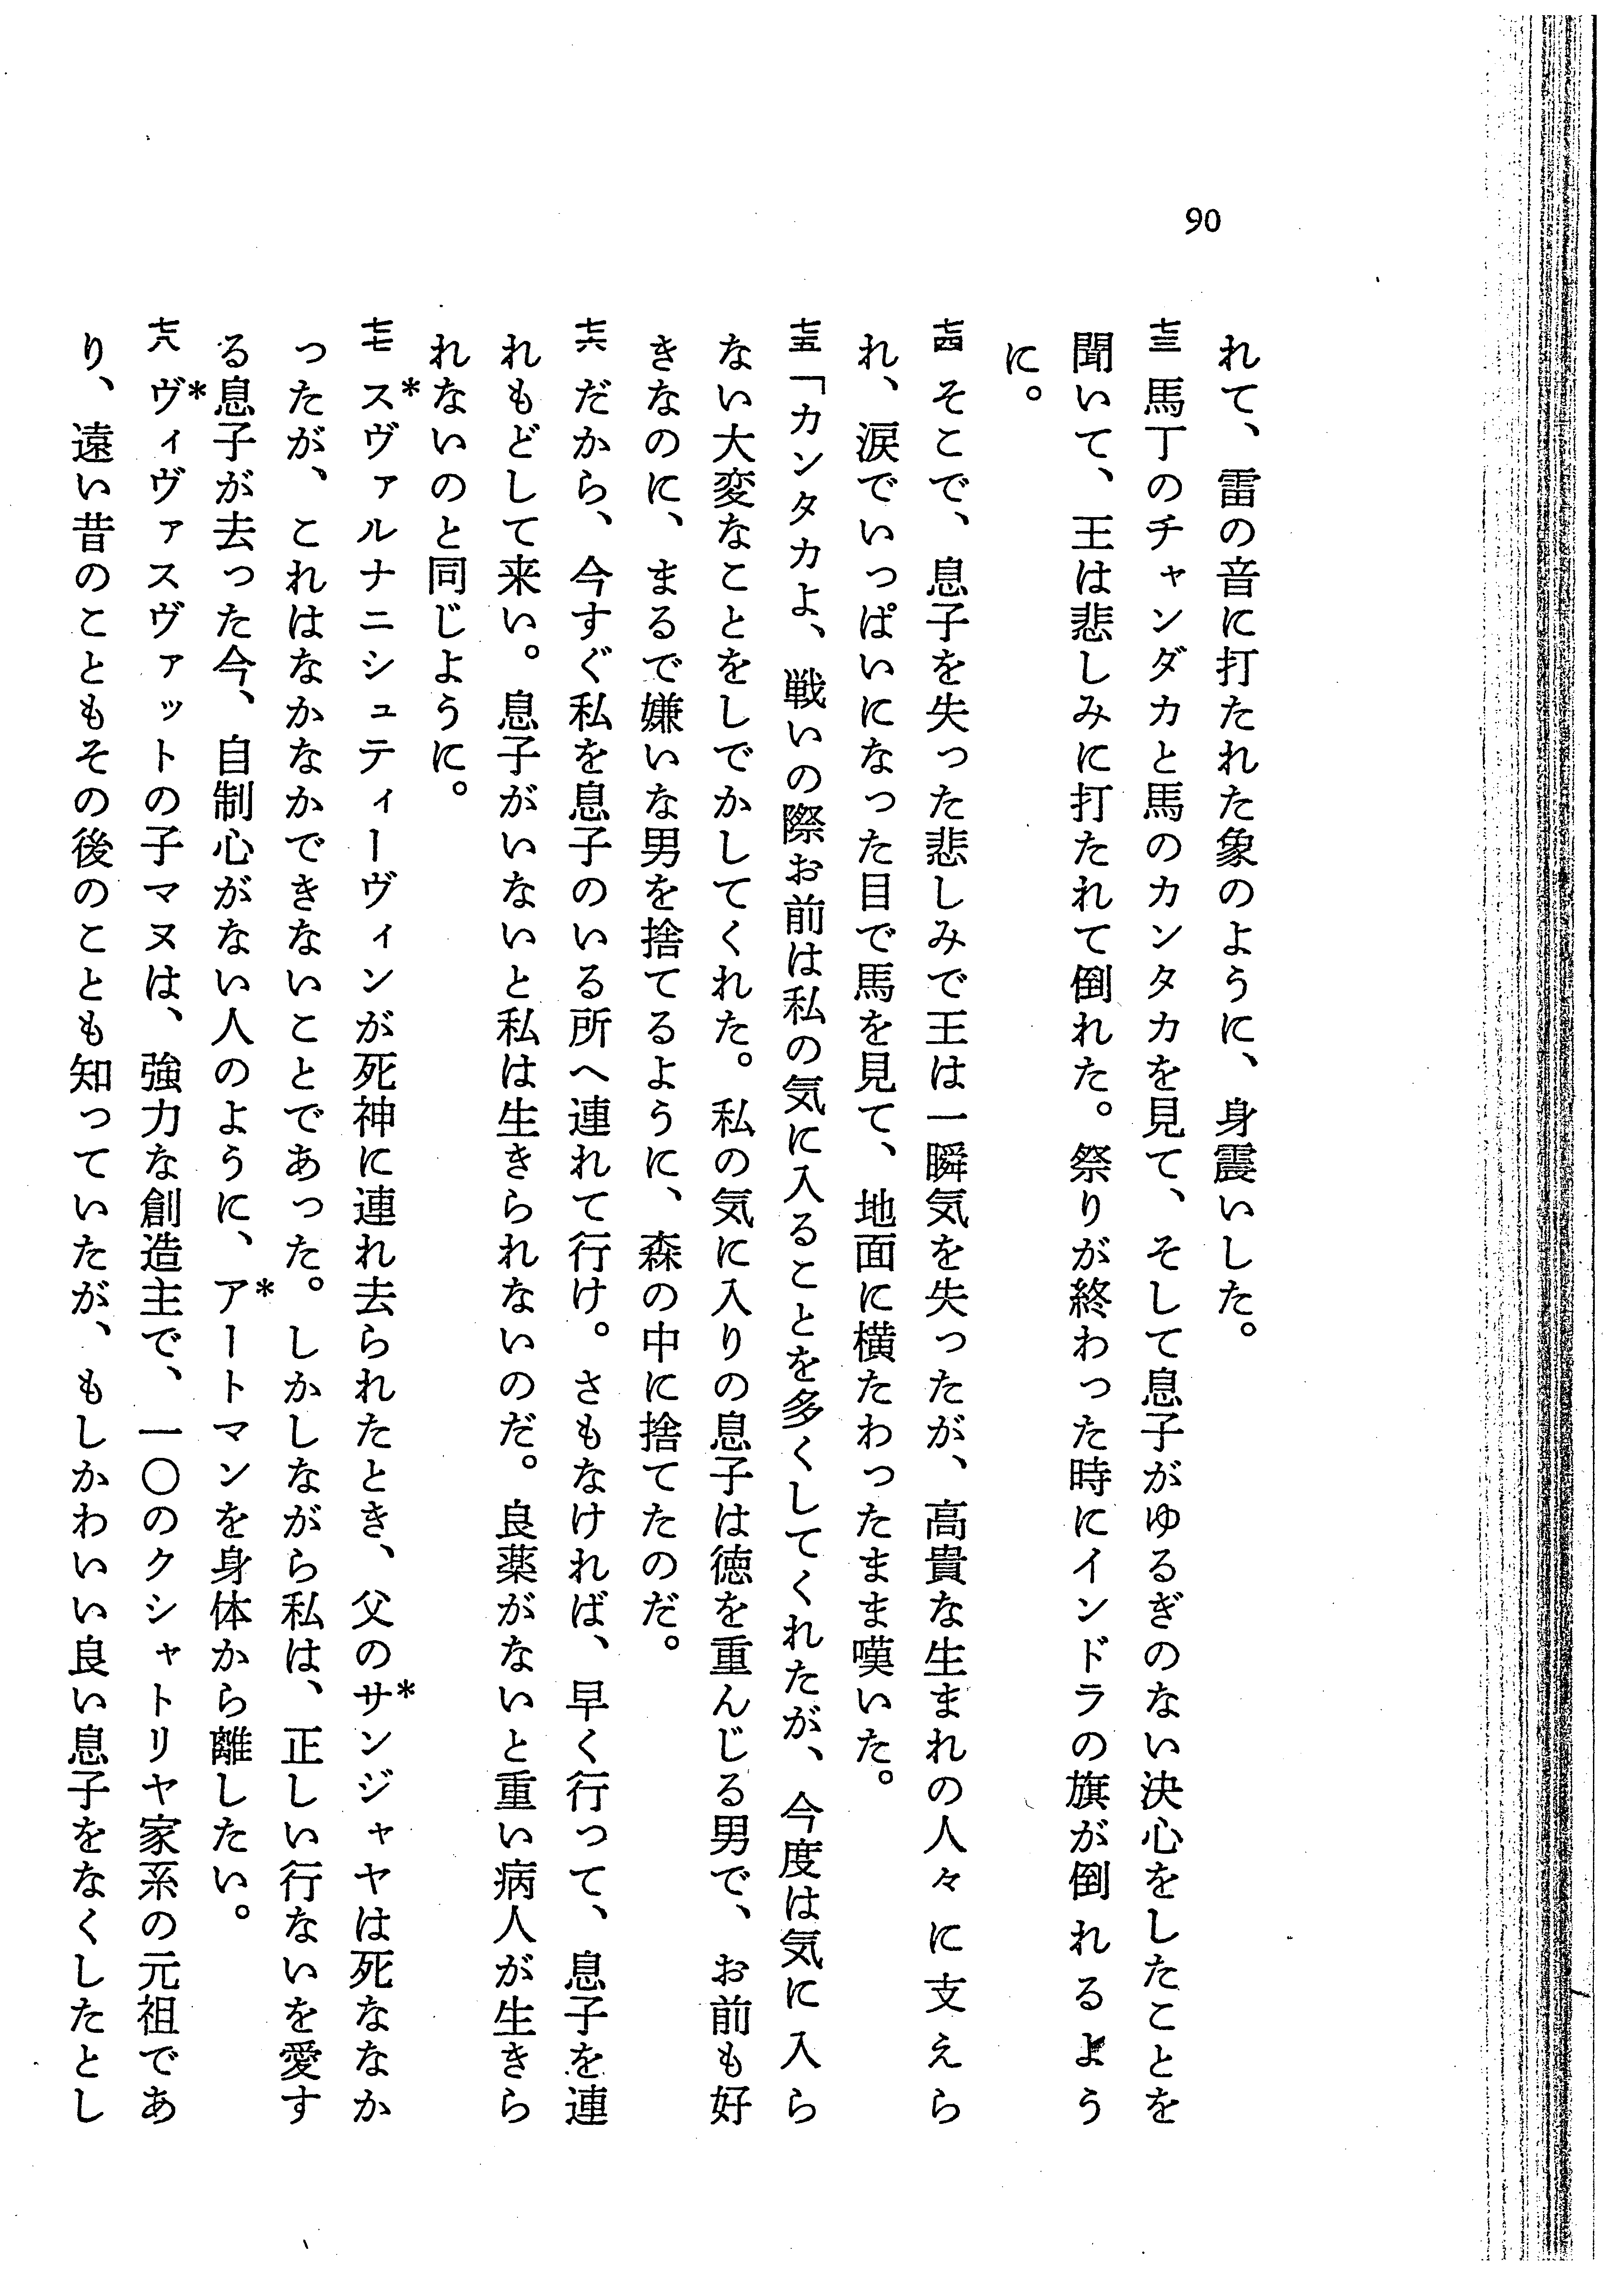 90
れて、雷の音に打たれた象のように、身震いした。
七三 馬丁のチャンダカと馬のカンタカを見て、そして息子がゆるぎのない決心をしたことを
聞いて、王は悲しみに打たれて倒れた。祭りが終わった時にインドラの旗が倒れるよう
に。
七四 そこで、息子を失った悲しみで王は一瞬気を失ったが、高貴な生まれの人々に支えら
れ、涙でいっぱいになった目で馬を見て、地面に横たわったまま嘆いた。
七五「カンタカよ、戦いの際お前は私の気に入ることを多くしてくれたが、今度は気に入ら
ない大変なことをしでかしてくれた。私の気に入りの息子は徳を重んじる男で、お前も好
きなのに、まるで嫌いな男を捨てるように、森の中に捨てたのだ。
七六 だから、今すぐ私を息子のいる所へ連れて行け。さもなければ、早く行って、息子を連
れもどして来い。息子がいないと私は生きられないのだ。良薬がないと重い病人が生きら
れないのと同じように。
七七 *スヴァルナニシュティーヴィンが死神に連れ去られたとき、父の*サンジャヤは死ななか
ったが、これはなかなかできないことであった。しかしながら私は、正しい行ないを愛す
る息子が去った今、自制心がない人のように、*アートマンを身体から離したい。
七八 *ヴィヴァスヴァットの子マヌは、強力な創造主で、一〇のクシャトリヤ家系の元祖であ
り、遠い昔のこともその後のことも知っていたが、もしかわいい良い息子をなくしたとし